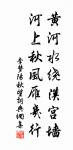 黄河水绕汉宫墙
河上秋风雁几行
李梦阳秋望诗词典网